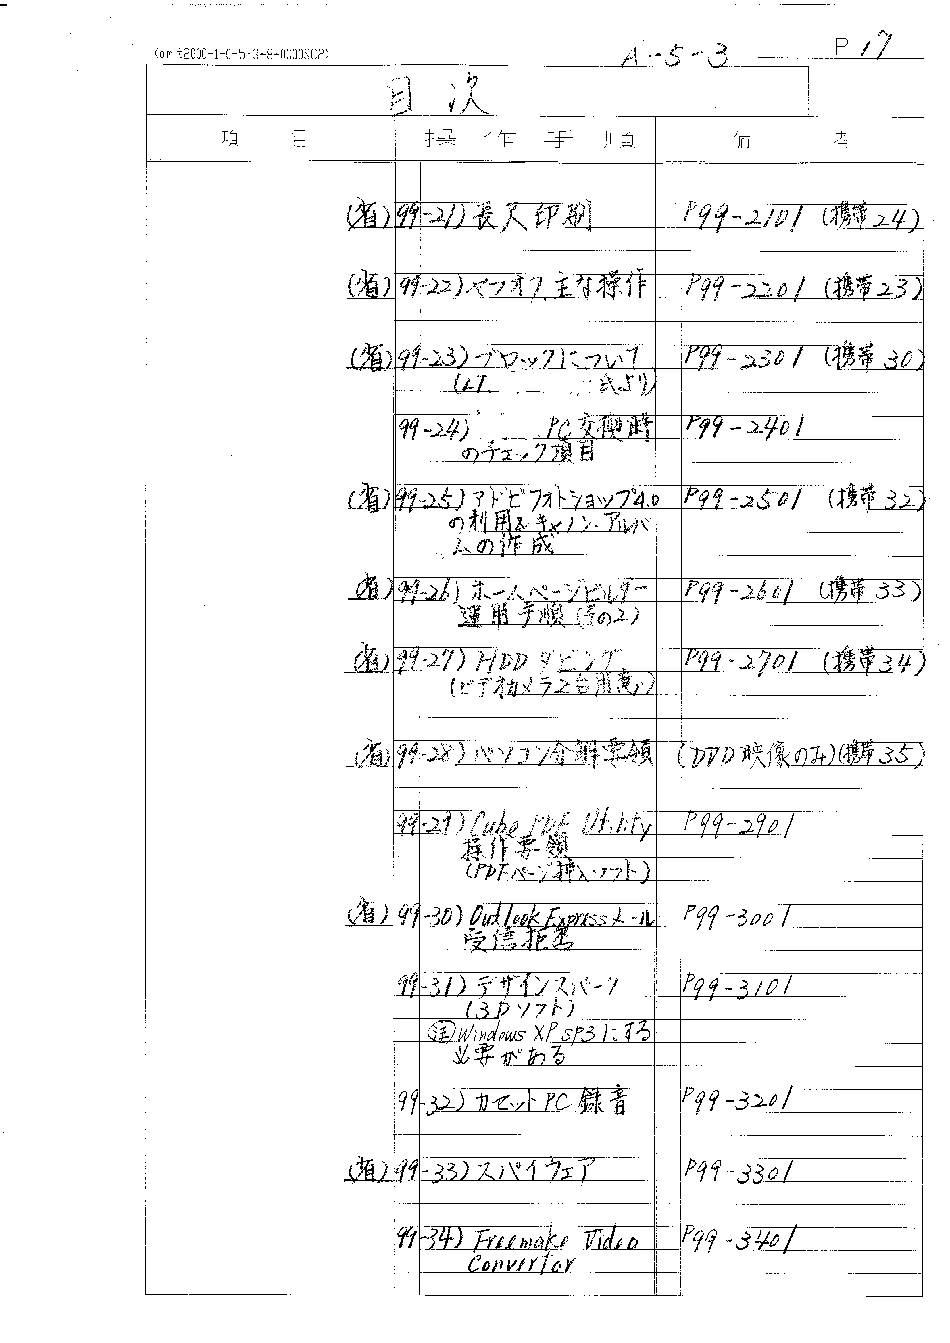 A-5-3 P 17
目次
項 目 操 作 手 順 備 考
(省) 99-21) 長尺印刷 P99-2101 (携帯24)
(省) 99-22) ペンオフ主な操作 P99-2201 (携帯23)
(省) 99-23) ブロックについて P99-2301 (携帯30)
氏より)
99-24) PC交換時 P99-2401
のチェック項目
(省) 99-25) アドビフォトショップ4.0 P99-2501 (携帯32)
の利用&キャノン・アルバ
ムの作成
(省) 99-26) ホームページビルダー P99-2601 (携帯33)
運用手順(その2)
(省) 99-27) HDDダビング P99-2701 (携帯34)
(ビデオカメラ2台用意)
(省) 99-28) パソコン分解要領 (DVD映像のみ)(携帯35)
99-29) Cube PDF Utility P99-2901
操作要領
(PDFページ挿入ソフト)
(省) 99-30) Outlook Expressメール P99-3001
受信拒否
99-31) デザインスパーク P99-3101
(3Dソフト)
注 Windows XP SP3にする
必要がある
99-32) カセットPC録音 P99-3201
(省) 99-33) スパイウェア P99-3301
99-34) Freemake Video P99-3401
Convertor